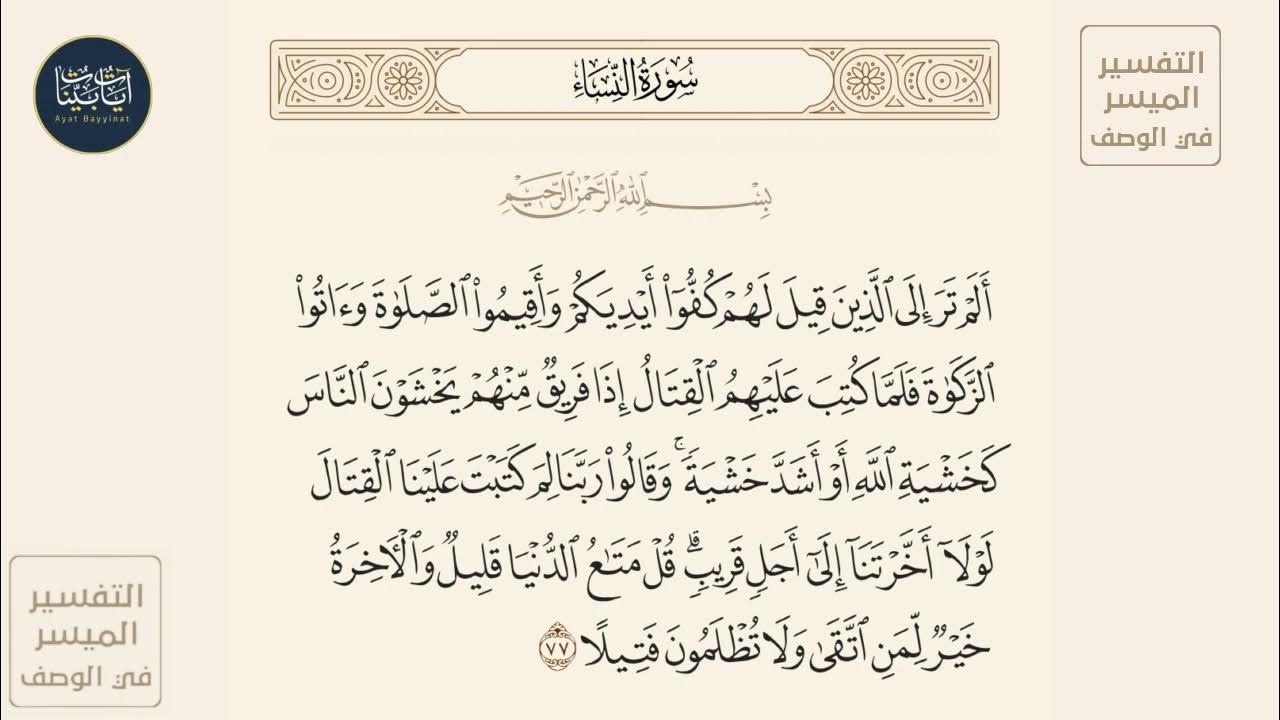 سُورَةُ النِّسَاءِ
آيَاتٌ بَيِّنَاتٌ
Ayat Bayyinat
التفسير
الميسر
في الوصف
بِسْمِ ٱللَّهِ ٱلرَّحْمَٰنِ ٱلرَّحِيمِ
أَلَمْ تَرَ إِلَى ٱلَّذِينَ قِيلَ لَهُمْ كُفُّوٓا۟ أَيْدِيَكُمْ وَأَقِيمُوا۟ ٱلصَّلَوٰةَ وَءَاتُوا۟
ٱلزَّكَوٰةَ فَلَمَّا كُتِبَ عَلَيْهِمُ ٱلْقِتَالُ إِذَا فَرِيقٌ مِّنْهُمْ يَخْشَوْنَ ٱلنَّاسَ
كَخَشْيَةِ ٱللَّهِ أَوْ أَشَدَّ خَشْيَةً ۚ وَقَالُوا۟ رَبَّنَا لِمَ كَتَبْتَ عَلَيْنَا ٱلْقِتَالَ
لَوْلَآ أَخَّرْتَنَآ إِلَىٰٓ أَجَلٍ قَرِيبٍ ۗ قُلْ مَتَٰعُ ٱلدُّنْيَا قَلِيلٌ وَٱلْءَاخِرَةُ
خَيْرٌ لِّمَنِ ٱتَّقَىٰ وَلَا تُظْلَمُونَ فَتِيلًا ٧٧
التفسير
الميسر
في الوصف